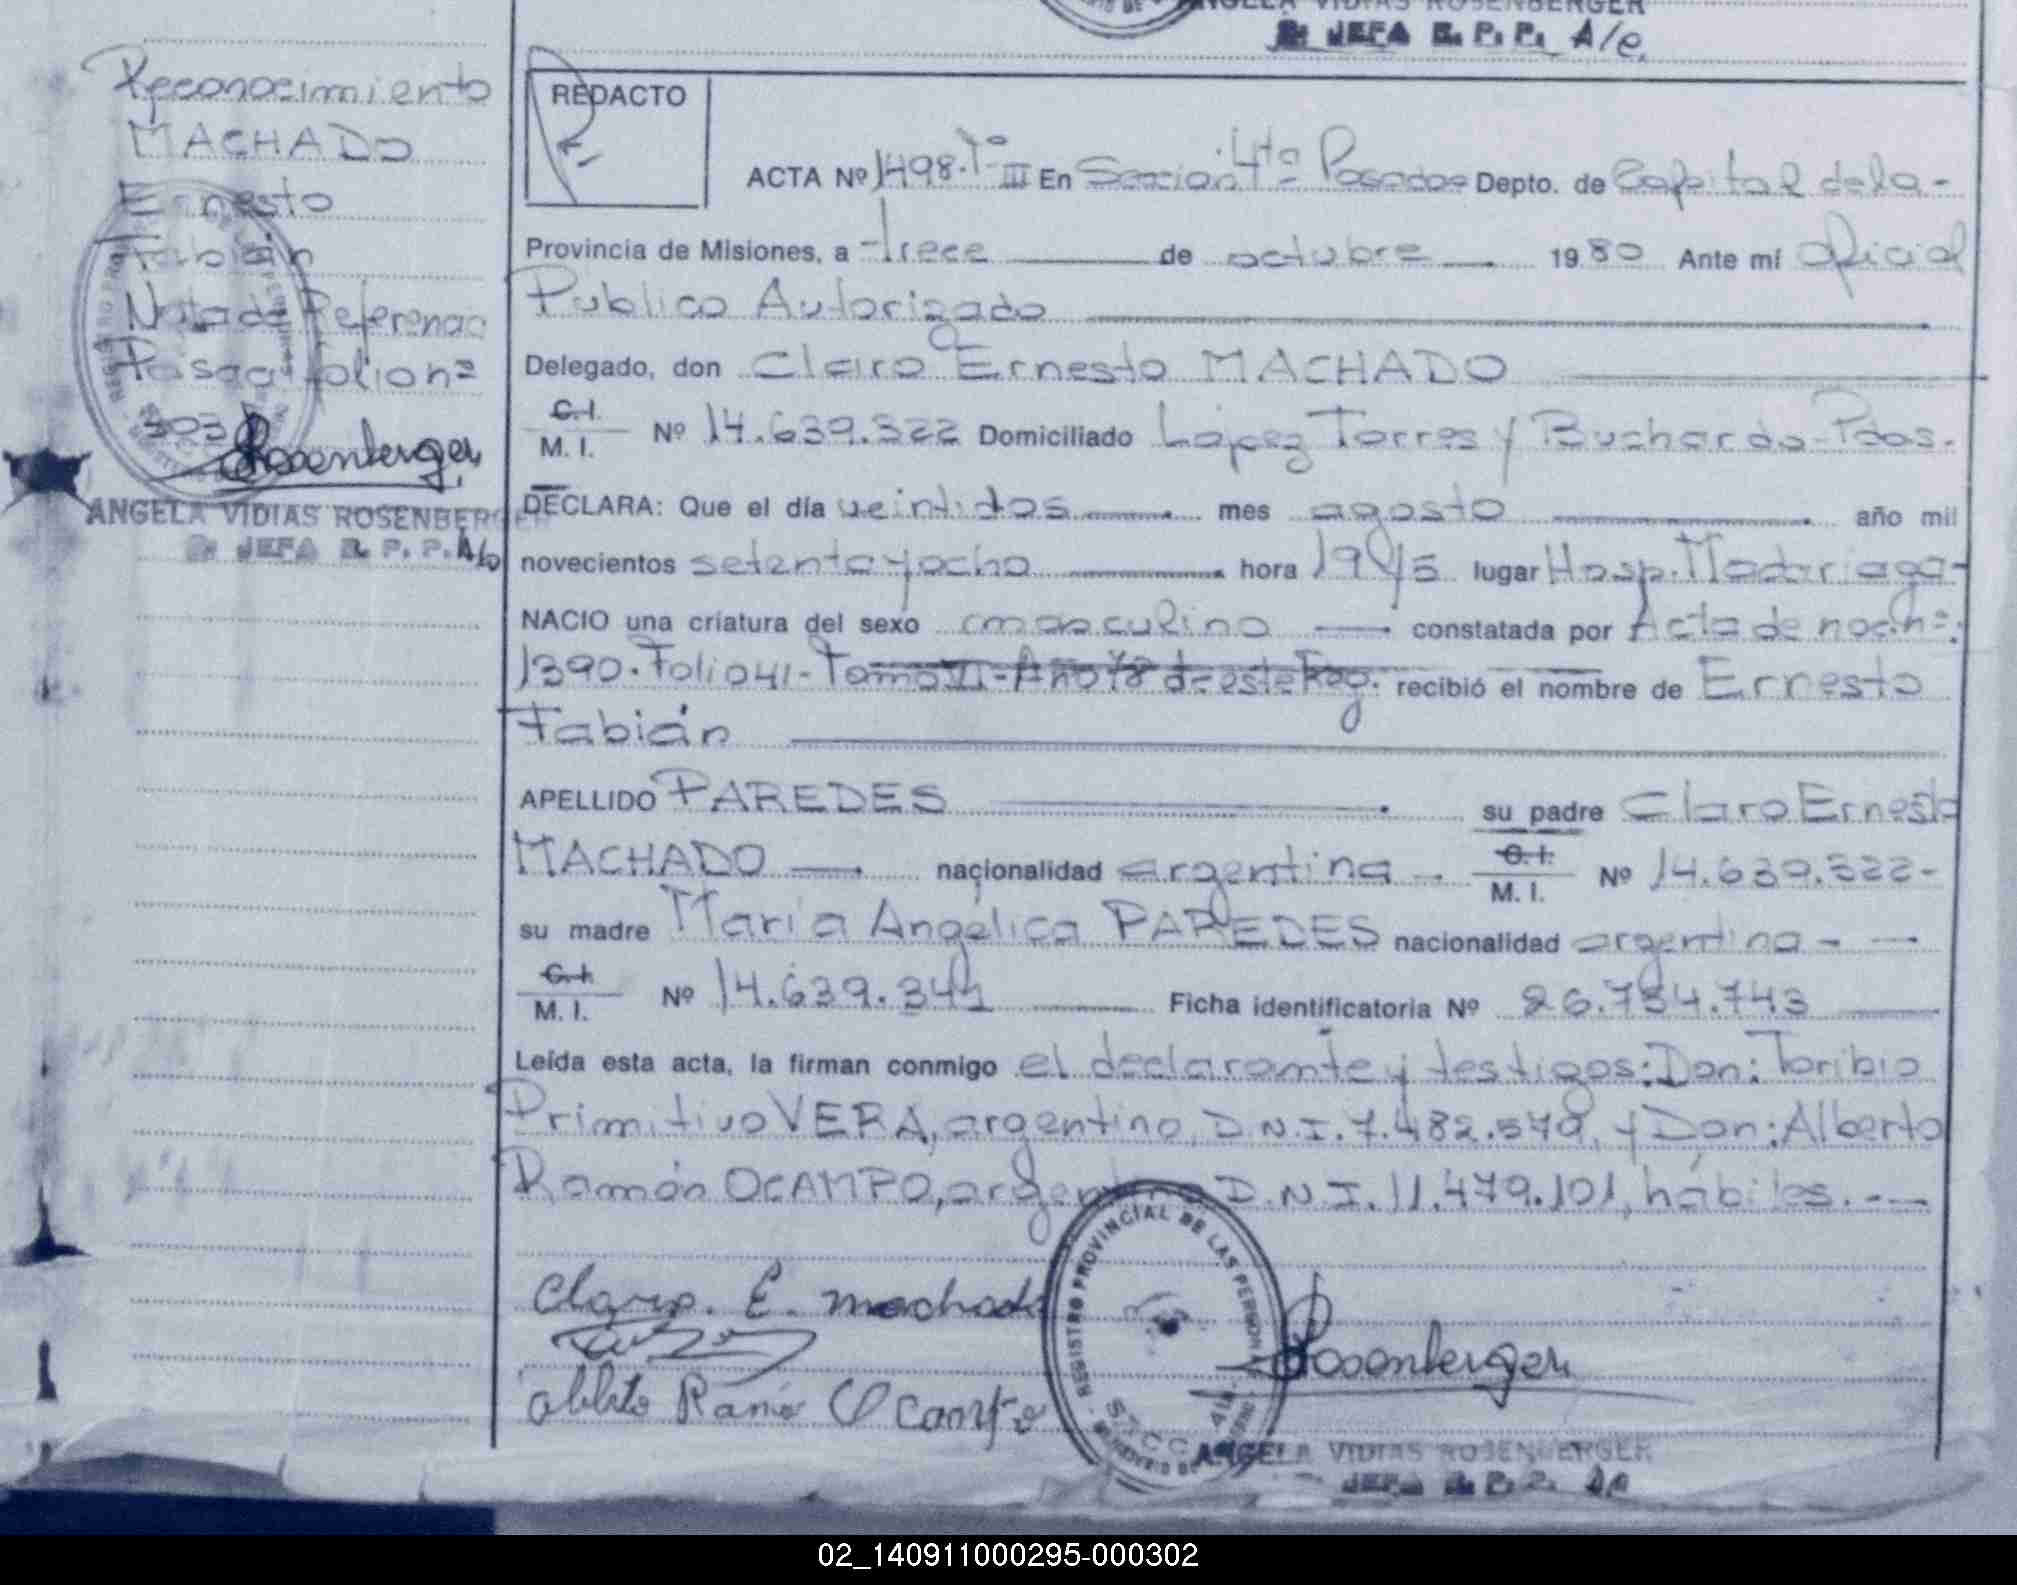 ANGELA VIDIAS ROSENBERGER
2a JEFA R. P. P. A/c.
Reconocimiento
MACHADO
Ernesto
Fabián
Nota de Referencia
Pasa a folio nº
303
Rosenberger
ANGELA VIDIAS ROSENBERGER
2a JEFA R. P. P. A/c
REDACTO
ACTA Nº 1498-Tº III En Sección 4ta Posadas Depto. de Capital de la-
Provincia de Misiones, a trece de octubre 1980 Ante mí Oficial
Publico Autorizado
Delegado, don Claro Ernesto MACHADO
C.I.
M. I. Nº 14.639.322 Domiciliado López Torres y Buchardo-Pdas.
DECLARA: Que el día veintidos mes agosto año mil
novecientos setenta y ocho hora 19 45 lugar Hosp. Madariaga-
NACIO una criatura del sexo masculino constatada por Acta de nac. nº:
1390-Folio 41-Tomo VI-Año 78 de este Reg. recibió el nombre de Ernesto
Fabián
APELLIDO PAREDES su padre Claro Ernesto
MACHADO nacionalidad argentina C.I.
M. I. Nº 14.639.322-
su madre María Angélica PAREDES nacionalidad argentina -
C.I.
M. I. Nº 14.639.341 Ficha identificatoria Nº 26.784.743
Leída esta acta, la firman conmigo el declarante y testigos: Don: Toribio
Primitivo VERA, argentino, D.N.I. 7.482.579, y Don: Alberto
Ramón OCAMPO, argentino D.N.I. 11.479.101, hábiles.---
Claro. E. machado
Alberto Ramón Ocampo
REGISTRO PROVINCIAL DE LAS PERSONAS
Rosenberger
ANGELA VIDIAS ROSENBERGER
JEFA R. P. P. A/c
02_140911000295-000302